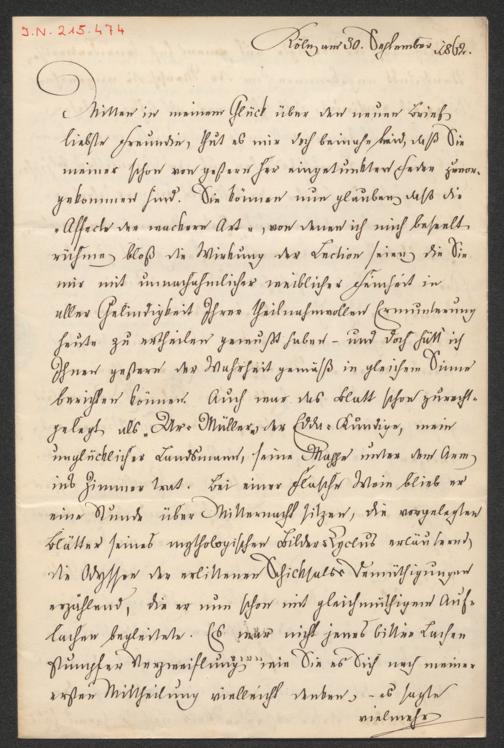 J.N. 215.474
Köln am 30. September 1862.
Mitten in meinem Glück über den neuen Brief,
liebste Freundin, thut es mir doch beinahe leid, daß Sie
meiner schon von gestern her eingetunkten Feder zuvor-
gekommen sind. Sie können nun glauben, daß die
"Affecte der wackern Art", von denen ich mich beseelt
rühme, bloß die Wirkung der Lection seien, die Sie
mir mit unnachahmlicher weiblicher Feinheit in
aller Gelindigkeit Ihrer theilnahmvollen Ermunterung
heute zu ertheilen gewußt haben – und doch hätt' ich
Ihnen gestern der Wahrheit gemäß in gleichem Sinne
berichten können. Auch war das Blatt schon zurecht-
gelegt, als Müller, der Edda-Kundige, mein
unglücklicher Landsmann, seine Mappe unter dem Arm,
ins Zimmer trat. Bei einer Flasche Wein blieb er
eine Stunde über Mitternacht sitzen, die vorgelegten
Blätter seines mythologischen Bilder-Cyclus erläuternd,
die Odyssee der erlittenen Schicksals-Demüthigungen
erzählend, die er nun schon mit gleichmüthigem Auf-
lachen begleitete. Es war nicht jenes bittre Lachen
stumpfer Verzweiflung, wie Sie es Sich nach meiner
ersten Mittheilung vielleicht denken, – es sagte
vielmehr